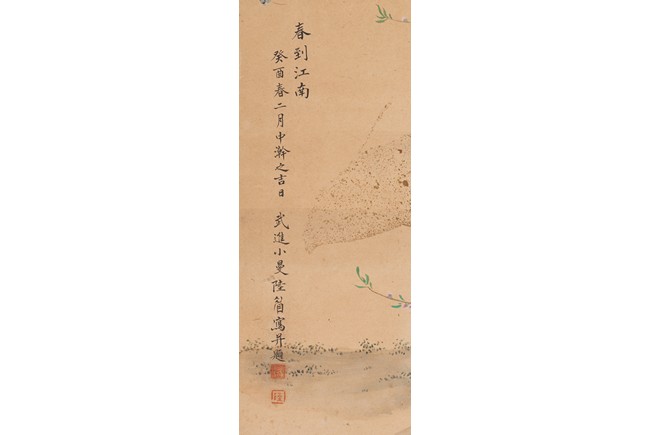 春到江南
癸酉春二月中澣之吉日 武進小曼陸眉寫并題